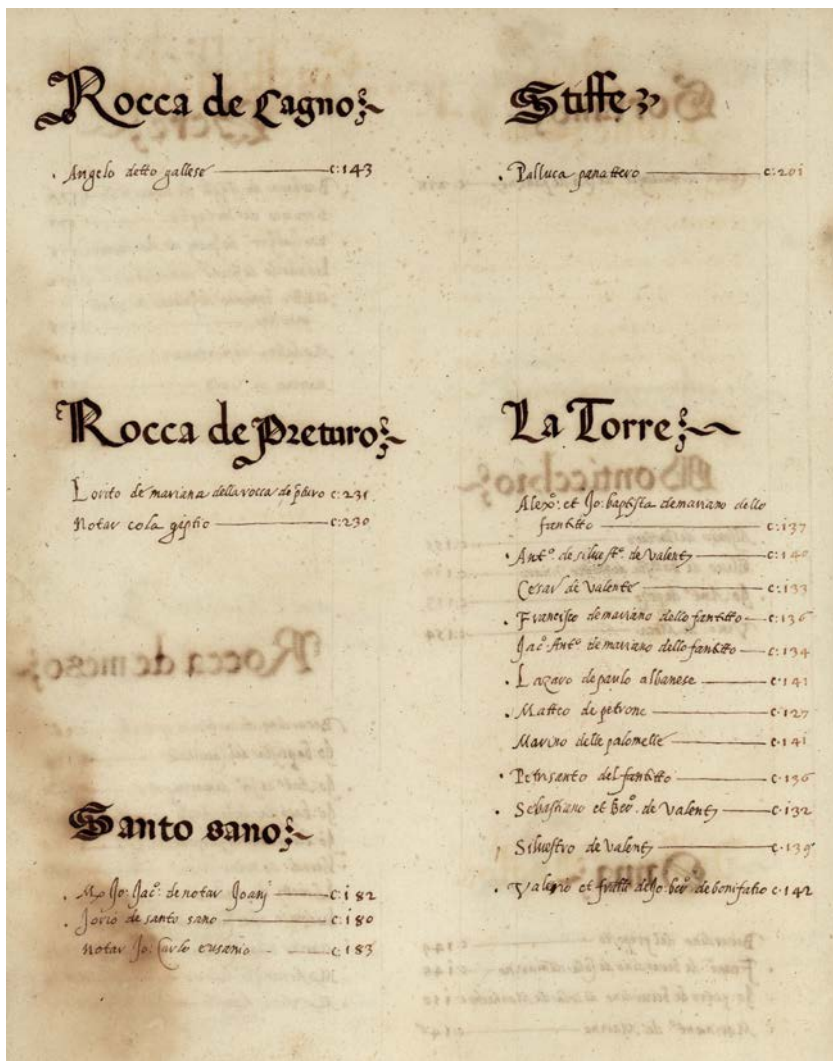 Rocca de Cagno
Angelo detto gallese c: 143
Rocca de Preturo
Lorito de mariana della rocca de pturo c: 231
Notar cola giptio c: 230
Santo sano
Mo Jo: Jac: de notar Joanj c: 182
Jorio de santo sano c: 180
Notar Jo: Carlo eusanio c: 183
Stiffe
Palluca panattero c: 201
La Torre
Alexo: et Jo: baptista de mariano dello
fantitto c: 137
Anto. de silvestro de valente c: 140
Cesar de valente c: 133
Francisco de mariano dello fantitto c: 136
Jaco: Anto de mariano dello fantitto c: 134
Lazaro de paulo albanese c: 141
Matteo de petrone c: 127
Marino delle palomelle c: 141
Petrisanto del fantitto c: 136
Sebastiano et Bero. de valente c: 132
Silvestro de valente c: 139
Valerio et de Jo: bero de bonifatio c: 142